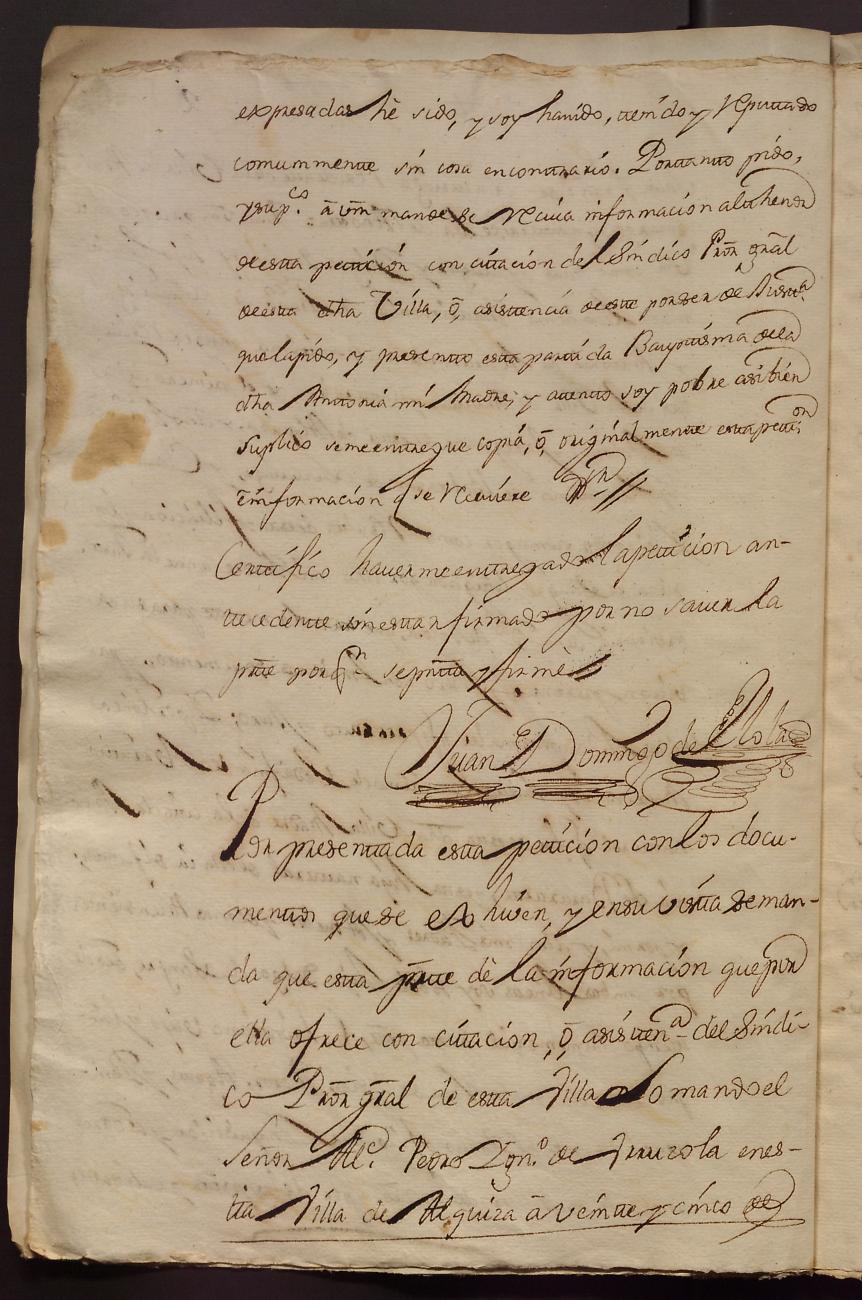 expresadas hè sido, y soy havido, tenido y Reputado
comunmente sin cosa encontrario. Portanto pido,
y sup.co à Vm mande se Reciva informacion althenor
de esta peticion con citacion del Sindico Pror gral
de esta dha Villa, ò, asistencia de este poder de
que la pido, y presento esta partida Bauptisma de la
dha Antonia mi Madre; y atento soy pobre asibien
suplico se me entregue copia, ò, originalmente esta petti.on
è informacion q se Reciviere
Certifico haverme entregado la peticion an-
tecedente sin estar firmado por no saver la
pte por qn se pnta y firmè
Juan Domingo de
Por presentada esta peticion con los docu-
mentos que se exhiven, y en su vista se man-
da que esta parte dè la informacion que por
ella ofrece con citacion, ò, asisten.a del Sindi-
co Pror gral de esta Villa lo mando el
Señor Alc.e Pedro Ign.o de Yrruzola en es-
ta Villa de Alquiza à veinte y cinco de